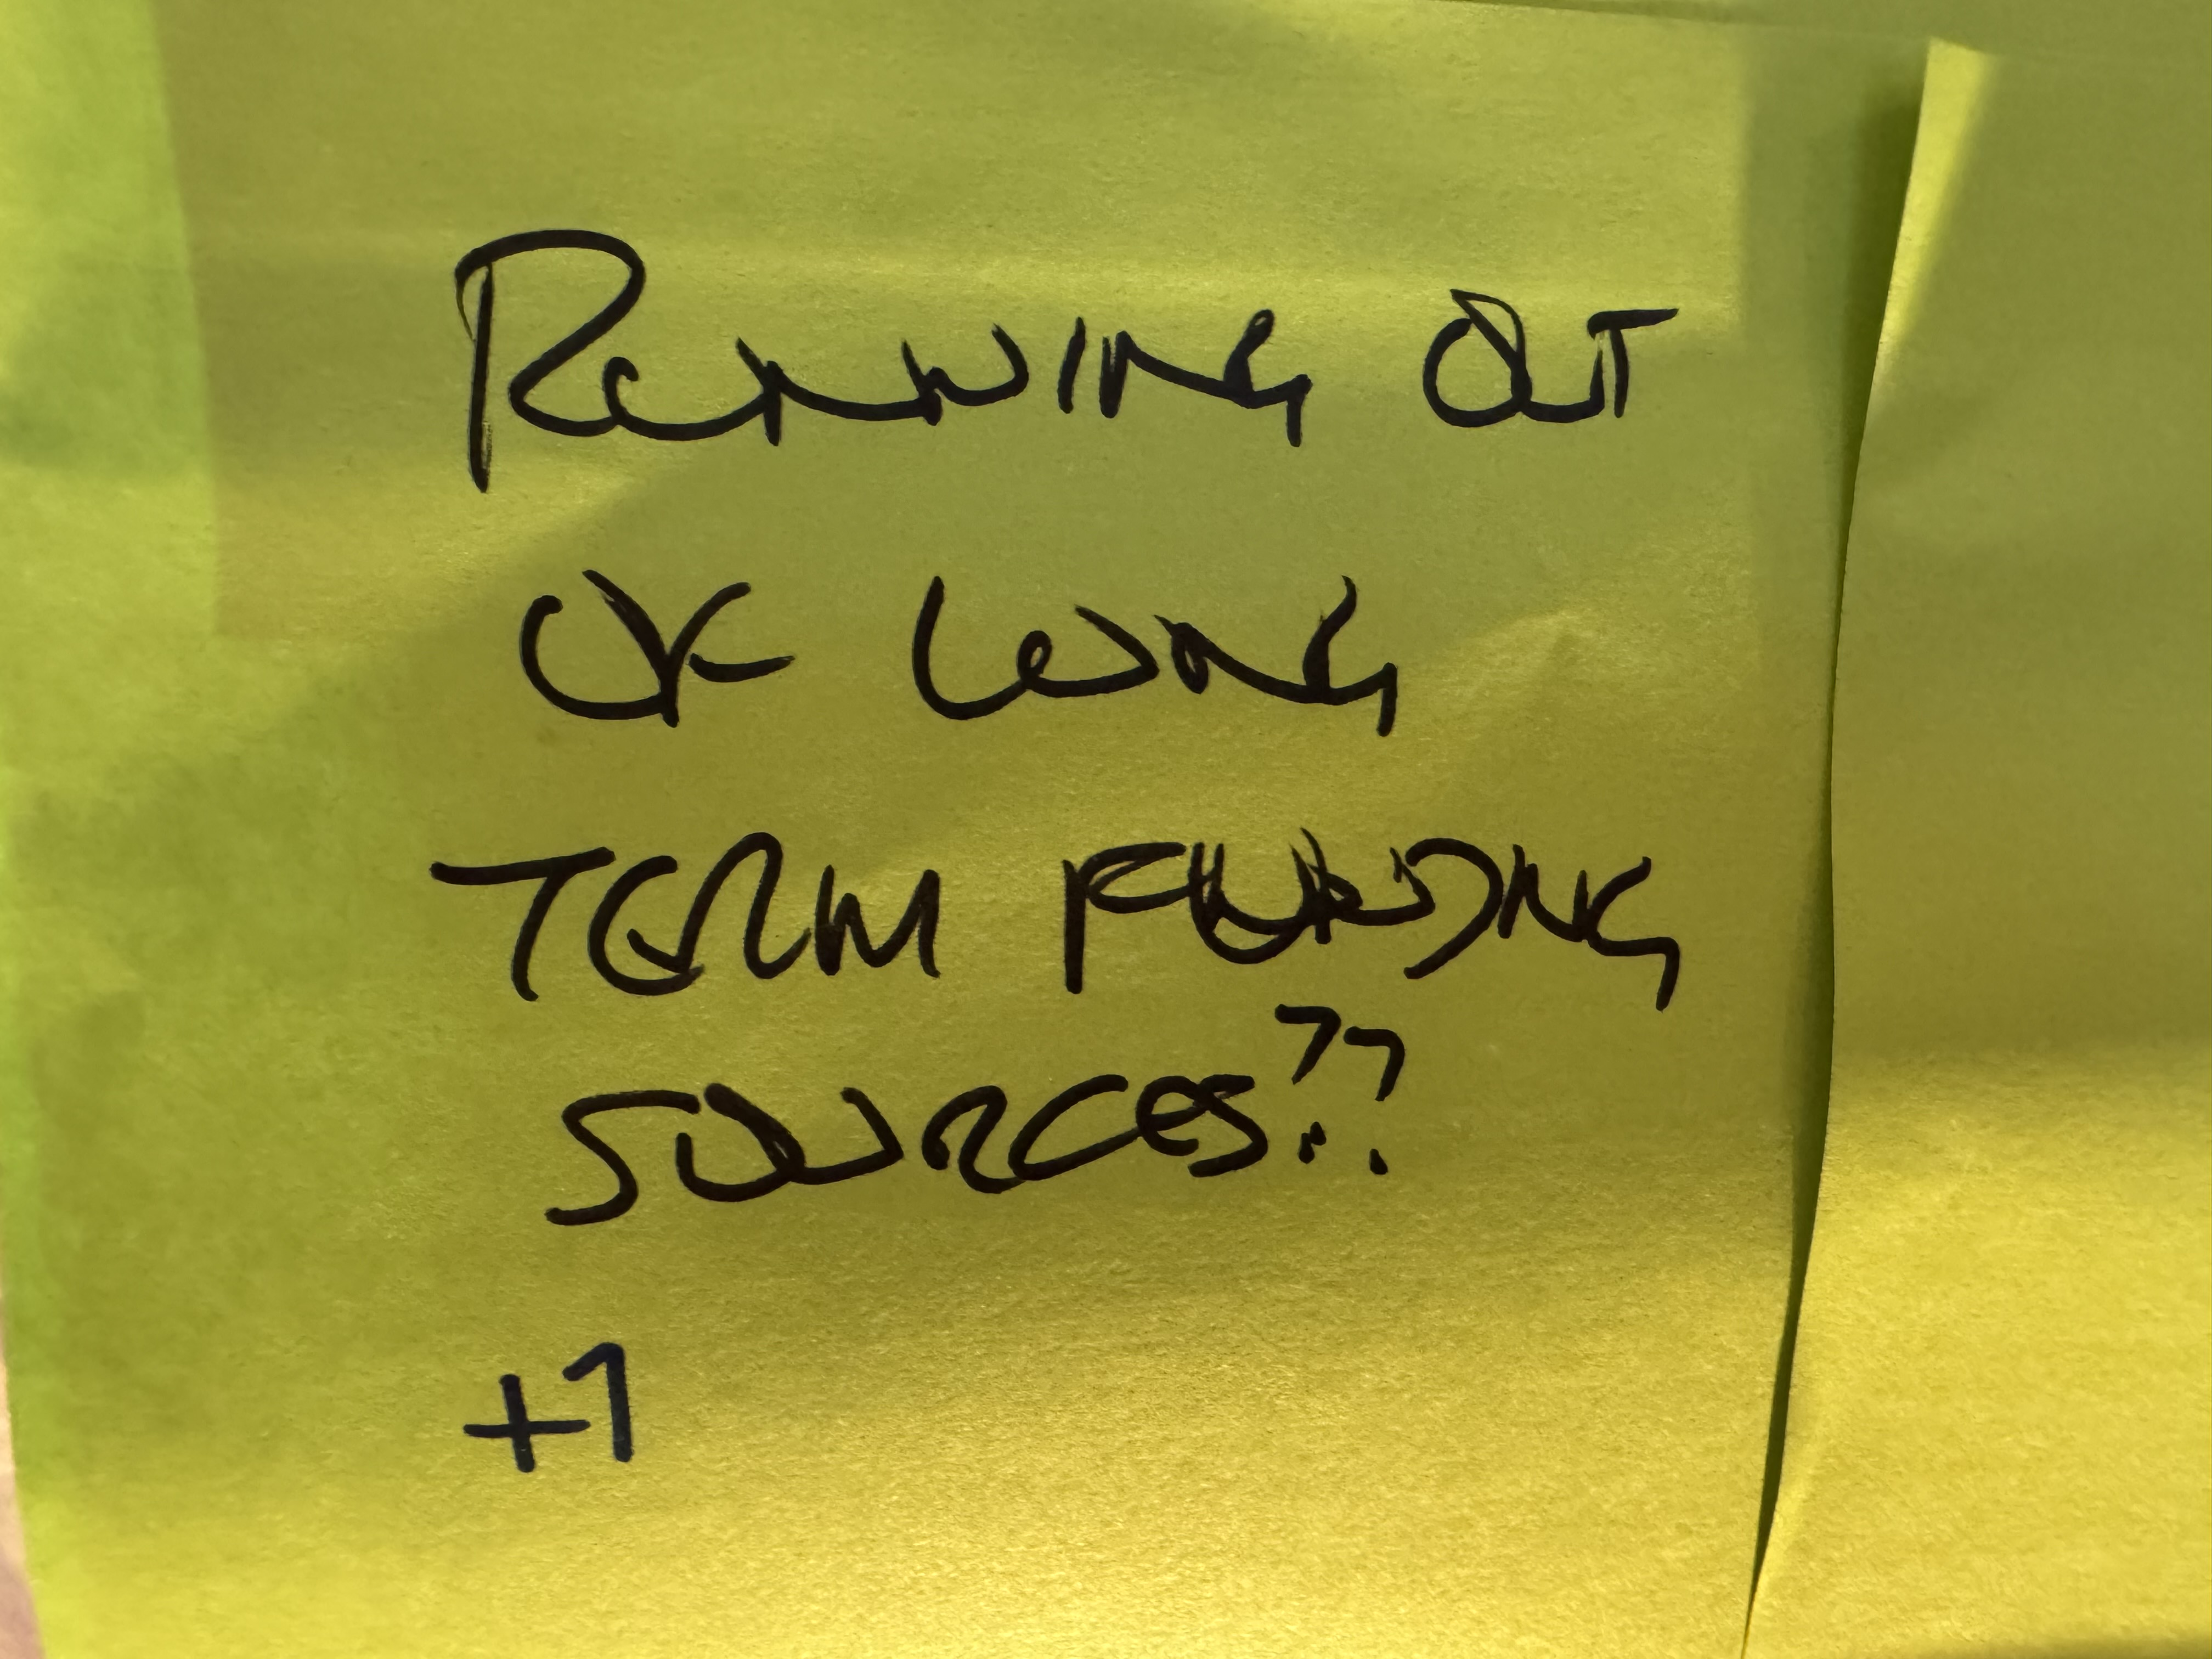 RUNNING OUT
OF LONG
TERM FUNDING
SOURCES??
+1